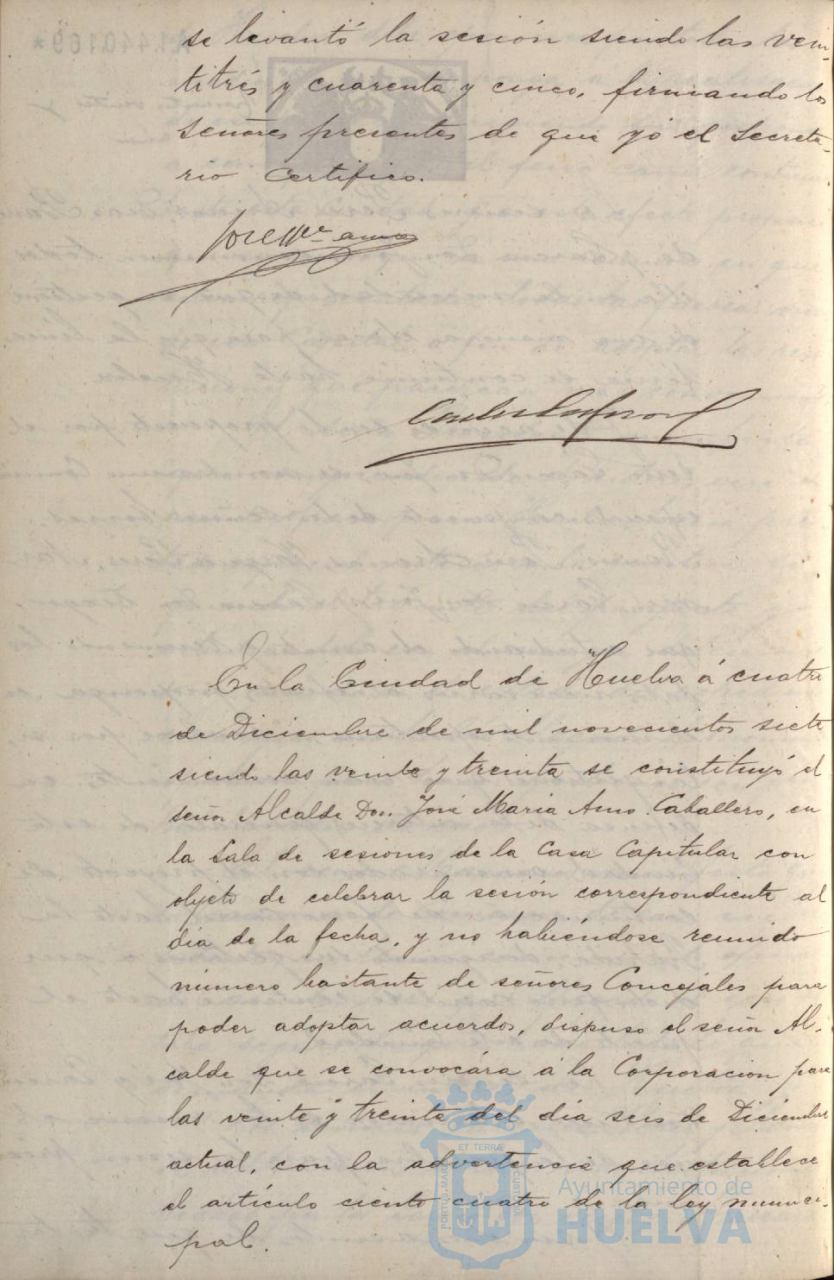 se levantó la sesión siendo las vein-
titrés y cuarenta y cinco, firmando los
señores presentes de que yó el Secreta-
rio certifico.
José Mª Amo
En la Ciudad de Huelva á cuatro
de Diciembre de mil novecientos siete
siendo las veinte y treinta se constituyó el
señor Alcalde Don José Maria Amo Caballero, en
la Sala de sesiones de la Casa Capitular con
objeto de celebrar la sesión correspondiente al
dia de la fecha, y no habiéndose reunido
número bastante de señores Concejales para
poder adoptar acuerdos, dispuso el señor Al-
calde que se convocára á la Corporacion para
las veinte y treinta del dia seis de Diciembre
actual, con la advertencia que establece
el artículo ciento cuatro de la ley munici-
pal.
Ayuntamiento de
HUELVA